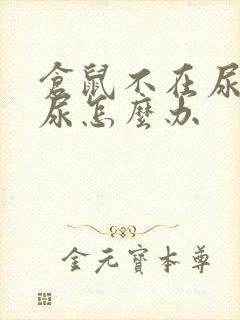 倉鼠不在尿
尿怎麼办
金元寶本尊